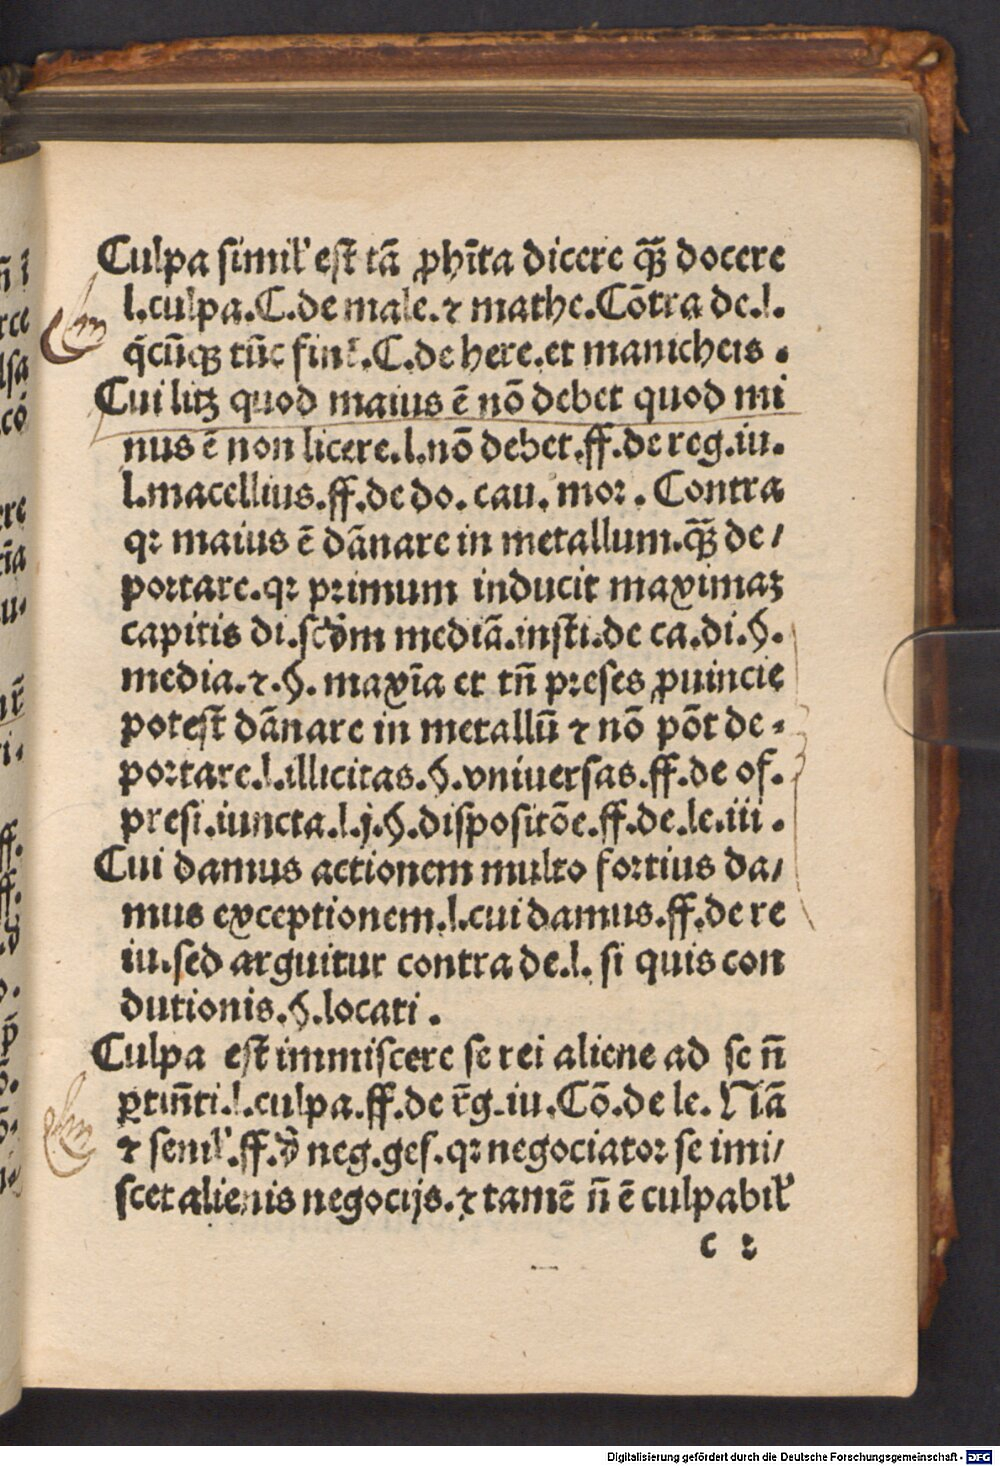 Culpa simil' est tā ꝓhīta dicere q̄ꝫ docere
l.culpa.C.de male.⁊ mathe.Cōtra de.l.
q̄cūqꝫ tūc finl.C.de here.et manicheis.
Cui litꝫ quod maius ē nō debet quod mi
nus ē non licere.l.nō debet.ff.de reg.iu.
l.macellius.ff.de do. cau. moꝛ. Contra
qꝛ maius ē dānare in metallum.q̄ꝫ de/
poꝛtare.qꝛ pꝛimum inducit maximaꝫ
capitis di.scd̄m mediā.insti.de ca.di.§.
media.⁊.§. maxīa et tn̄ pꝛeses ꝓuincie
potest dānare in metallū ⁊ nō pōt de-
poꝛtare.l.illicitas.§.vniuersas.ff.de of.
presi.iuncta.l.j.§.dispositōe.ff.de.le.iii.
Cui damus actionem multo foꝛtius da/
mus exceptionem.l.cui damus.ff.de re
iu.sed arguitur contra de.l. si quis con
dutionis.§.locati.
Culpa est immiscere se rei aliene ad se n̄
ꝑtin̄ti.l.culpa.ff.de r̄g.iu.Cō.de le. Nā
⁊ semil'.ff.d̄ neg.ges.qꝛ negociatoꝛ se imi/
scet alienis negocijs.⁊ tamē n̄ ē culpabil'
c 2
Digitalisierung gefördert durch die Deutsche Forschungsgemeinschaft - DFG